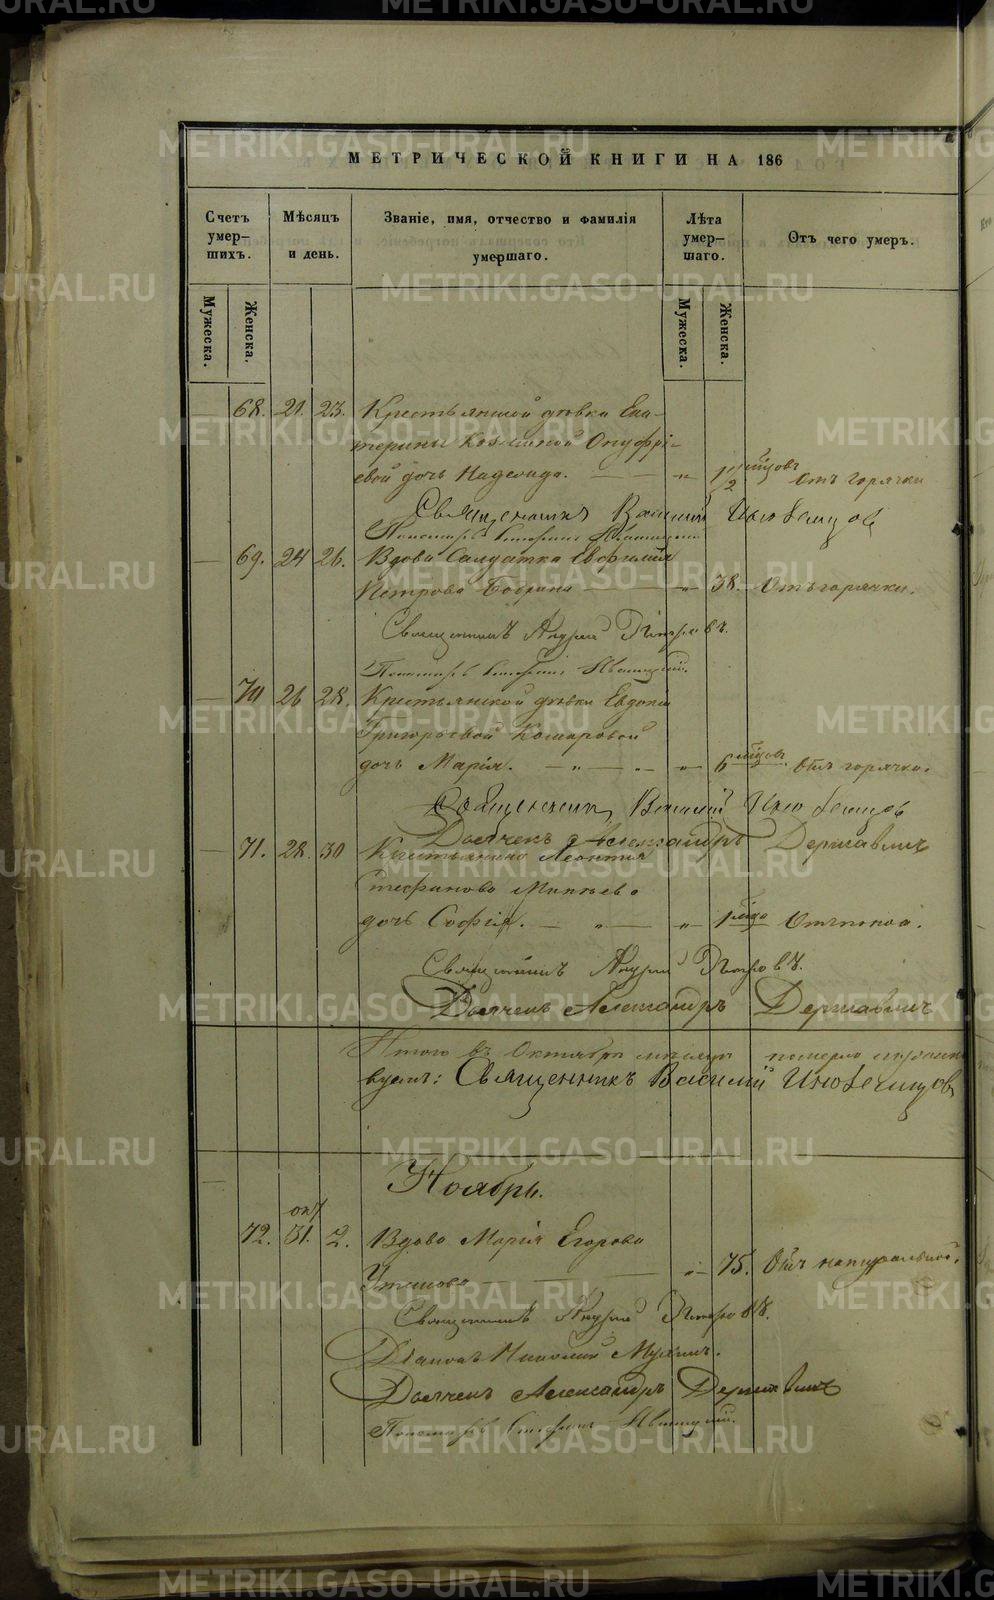 МЕТРИЧЕСКОЙ КНИГИ НА 186
Счетъ умер-шихъ.
Мѣсяцъ и день.
Званіе, имя, отчество и фамилія умершаго.
Лѣта умер-шаго.
Отъ чего умеръ.
Мужеска. Женска.
Мужеска. Женска.
68. 21. 23. Крестьянской дѣвки Ека-
терины Козьминой Онуфрі-
евой дочь Надежда. 1/2 мѣсяцовъ Отъ горячки
Священникъ Василій Иноземцов
Пономарь
69. 24 26. Вдова Салдатка Евфимія
Петрова 38. Отъ горячки.
Священникъ Андрей Петровъ.
Пономарь
70 26 28. Крестьянской дѣвки Евдокіи
Григорьевой Комаровой
дочь Марія. 6 мѣсяцовъ. Отъ горячки.
Священникъ Василій Иноземцов
Дьячекъ Александръ Державинъ
71. 28. 30 Крестьянина Леонтія
Стефанова
дочь Софія. 1 года Отъ поноса.
Священникъ Андрей Петровъ.
Дьячекъ Александръ Державинъ
Итого въ Октябрѣ мѣсяцѣ померло
Священникъ Василій Иноземцов
Ноябрь.
окт
72. 31. 2. Вдова Марія Егорова
75. Отъ натуральной.
Священникъ Андрей Петровъ.
Діаконъ Николай
Дьячекъ Александръ Державинъ
Пономарь
METRIKI.GASO-URAL.RU